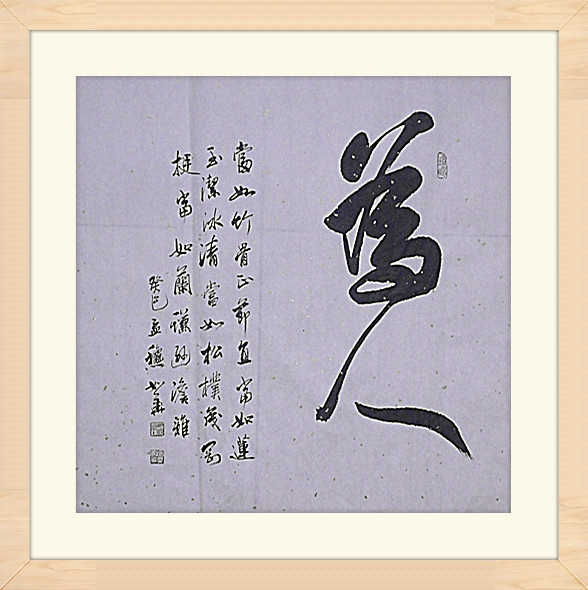 為人
當如竹骨正節直當如蓮
玉潔冰清當如松樸茂剛
挺當如蘭謙幽澹雅
癸巳孟